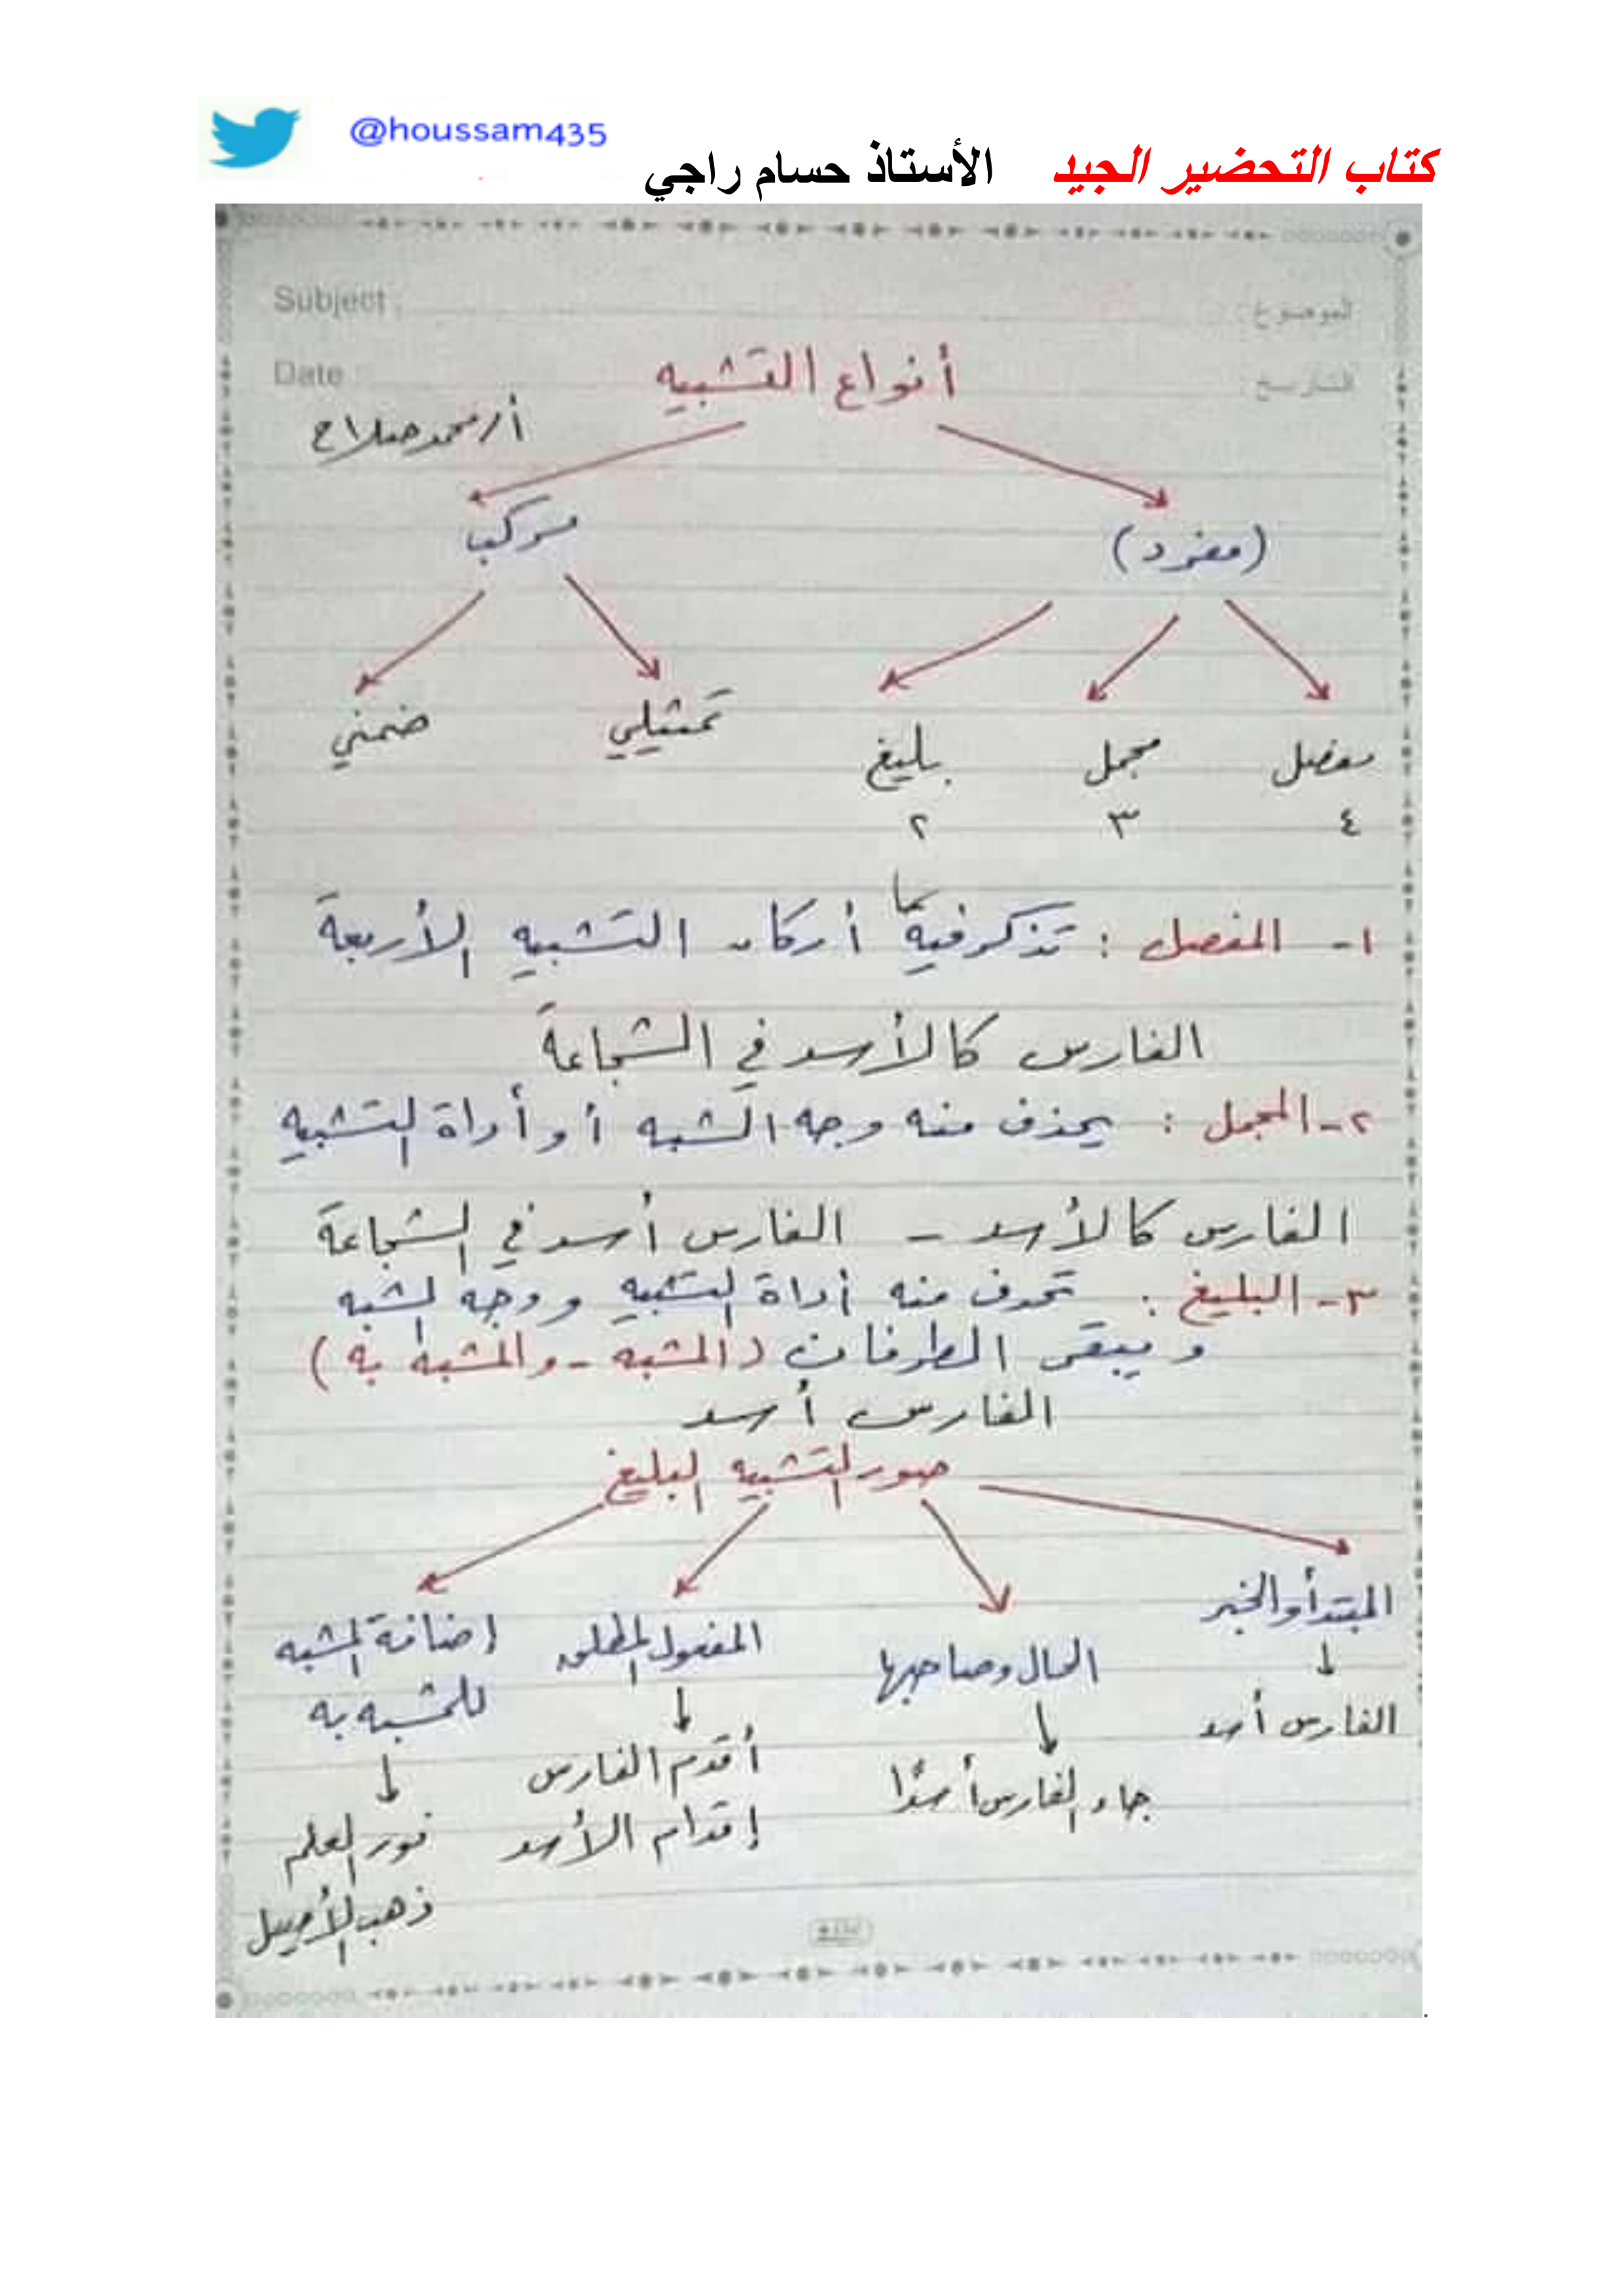 @houssam435
كتاب التحضير الجيد الأستاذ حسام راجي
Subject : الموضوع :
Date : التاريخ :
أنواع التشبيه
أ/ محمد صلاح
(مفرد) مركب
مفصل مجمل بليغ تمثيلي ضمني
٤ ٣ ٢
١- المفصل : تذكر فيه أركان التشبيه الأربعة
الفارس كالأسد في الشجاعة
٢- المجمل : يحذف منه وجه الشبه أو أداة التشبيه
الفارس كالأسد - الفارس أسد في الشجاعة
٣- البليغ : تحذف منه أداة التشبيه ووجه الشبه
ويبقى الطرفان (المشبه - والمشبه به)
الفارس أسد
صور التشبيه البليغ
المبتدأ والخبر
الفارس أسد
الحال وصاحبها
جاء الفارس أسدًا
المفعول المطلق
أقدم الفارس
إقدام الأسد
إضافة المشبه
للمشبه به
نور العلم
ذهب الأصيل